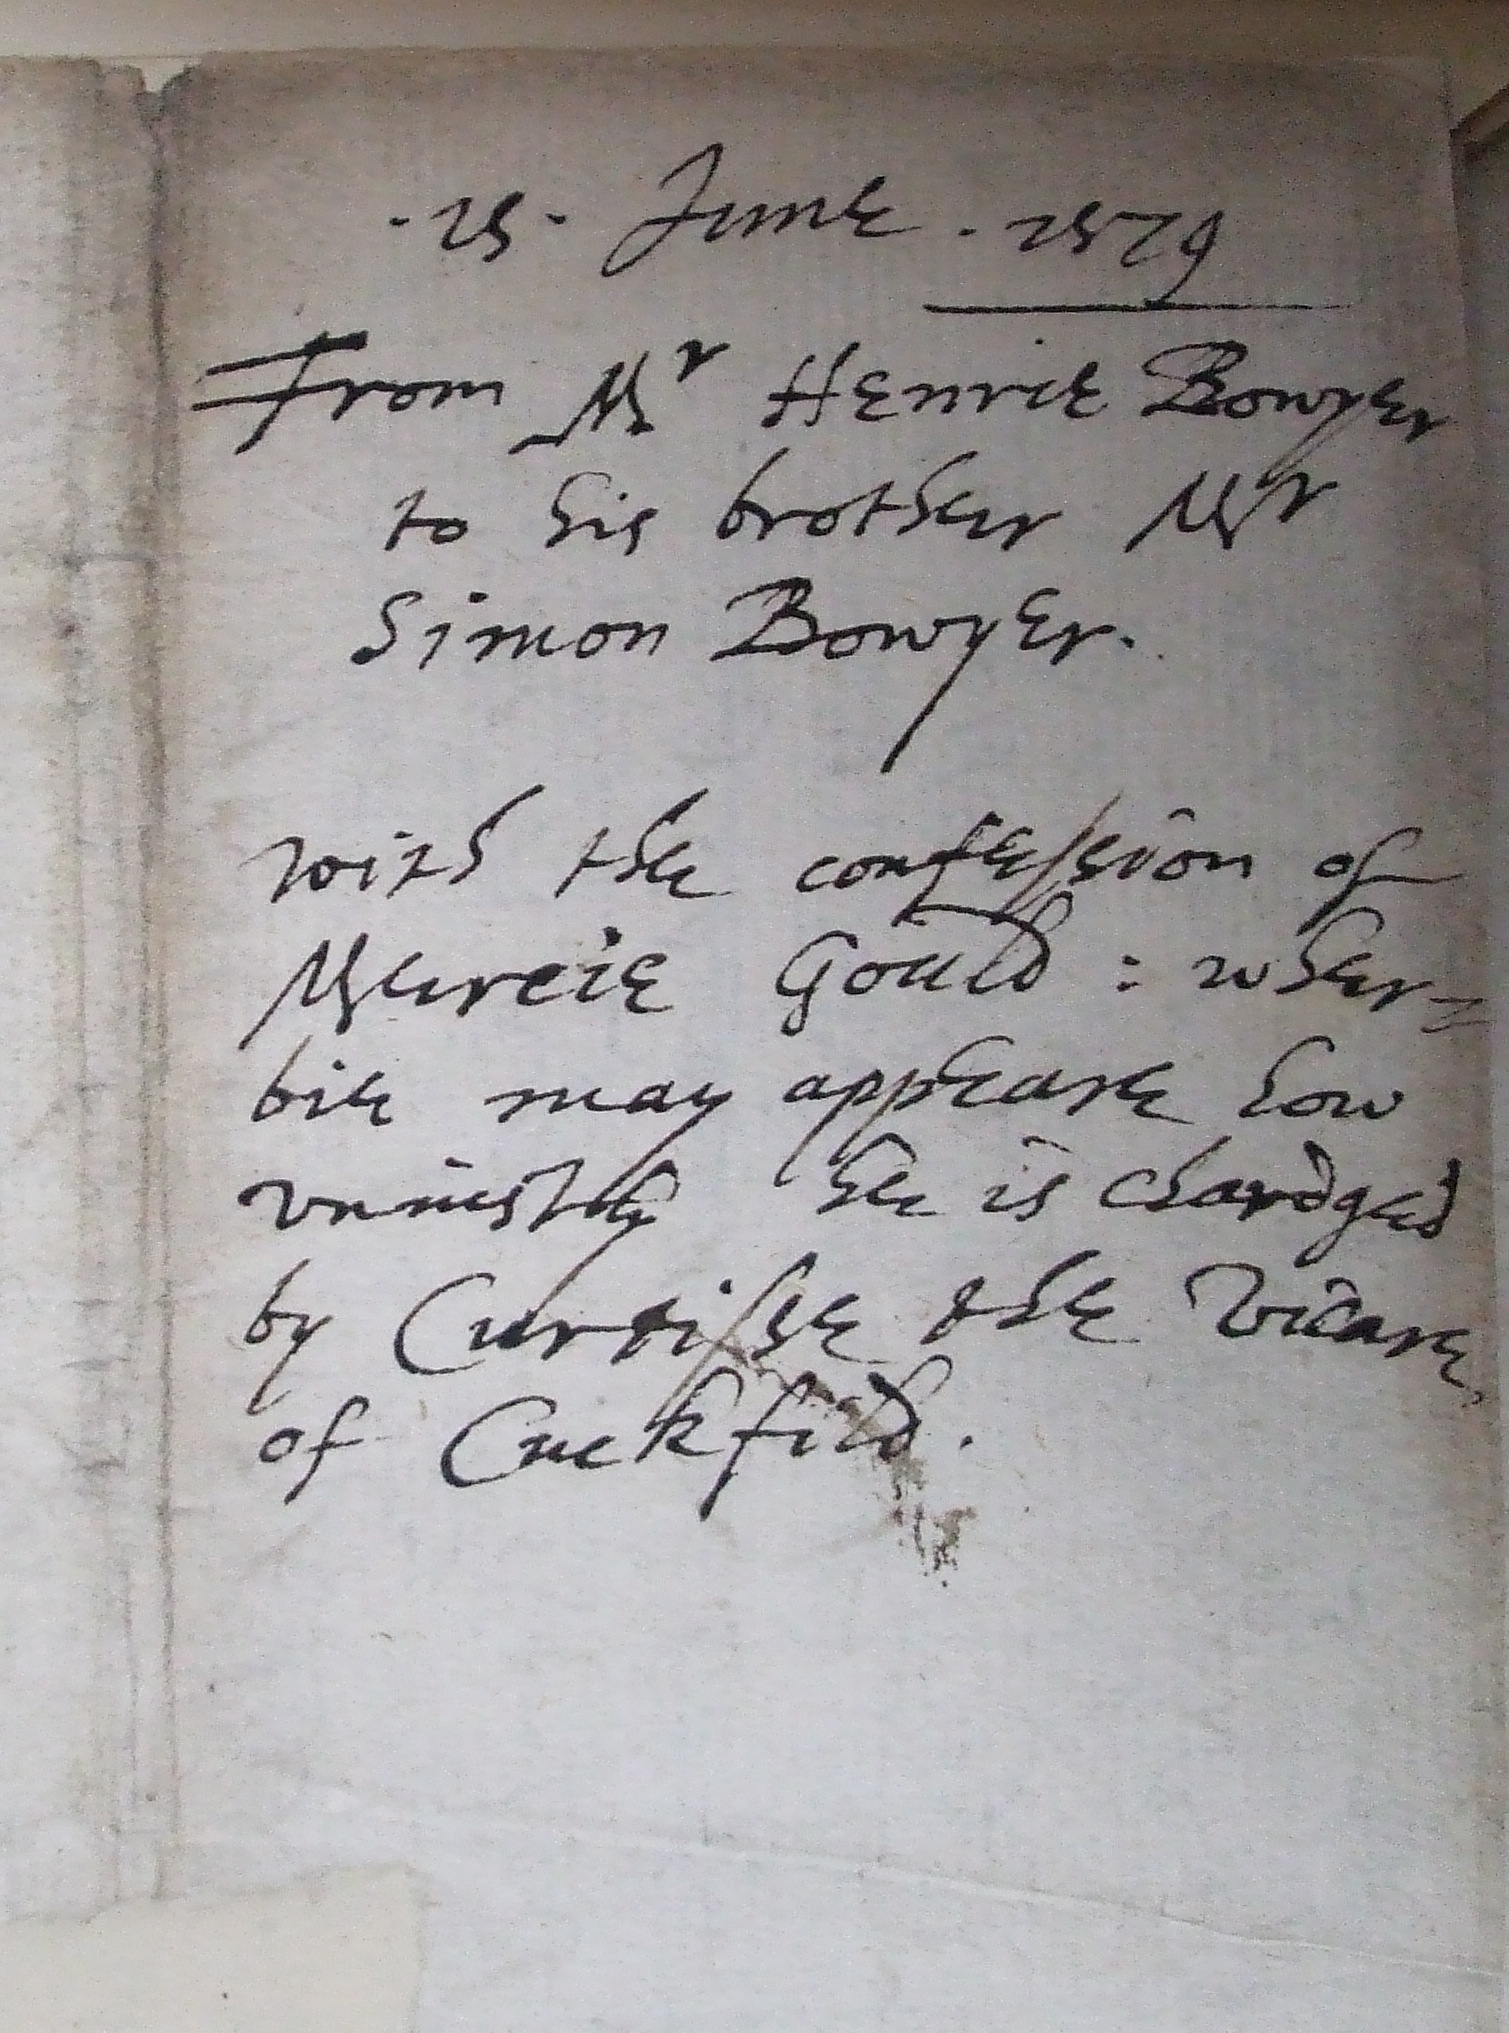 .15. June . 1579
From Mr Henrie Bowyer
to his brother Mr
Simon Bowyer.
with the confession of
Mercie Gould : wher=
bie may appeare how
vniustly he is chardged
by Curtisse the Vicare
of Cuckfild.